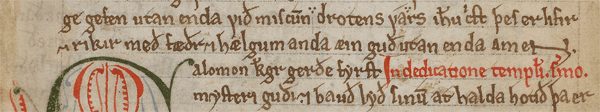 ge geſen utan enda við miſcun drotens várs ihu cſt þeſ er lifir
⁊ rikir með fæðr ⁊ hælgum anda æin guð utan enda amen.
Salomon kgr gerðe fyrſt In dedicatione templi. ſermo.
myſteri guði ⁊ bauð lyð ſinum at halda hotið þa er